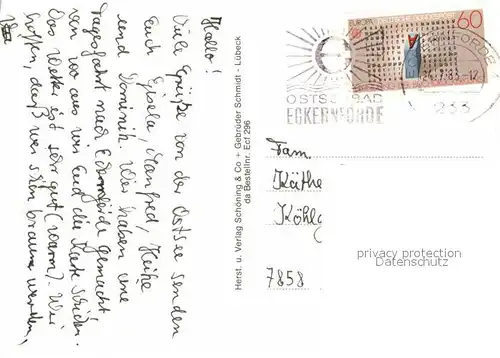 Hallo!
Viele Grüße von der Ostsee senden
Euch Gisela, Manfred, Heike
und Dominik. Wir haben eine
Tagesfahrt nach Eckernförde gemacht
von wo aus wir Euch die Karte schicken.
Das Wetter ist sehr gut (warm). Wir
hoffen, daß wir schön braun werden,
Herst. u. Verlag Schöning & Co + Gebrüder Schmidt - Lübeck
da Bestellnr. Ecf 296
EUROPA
60
OSTSEEBAD
ECKERNFÖRDE
7.83-12
233
Fam.
Käthe
Köhle
7858
privacy protection
Datenschutz